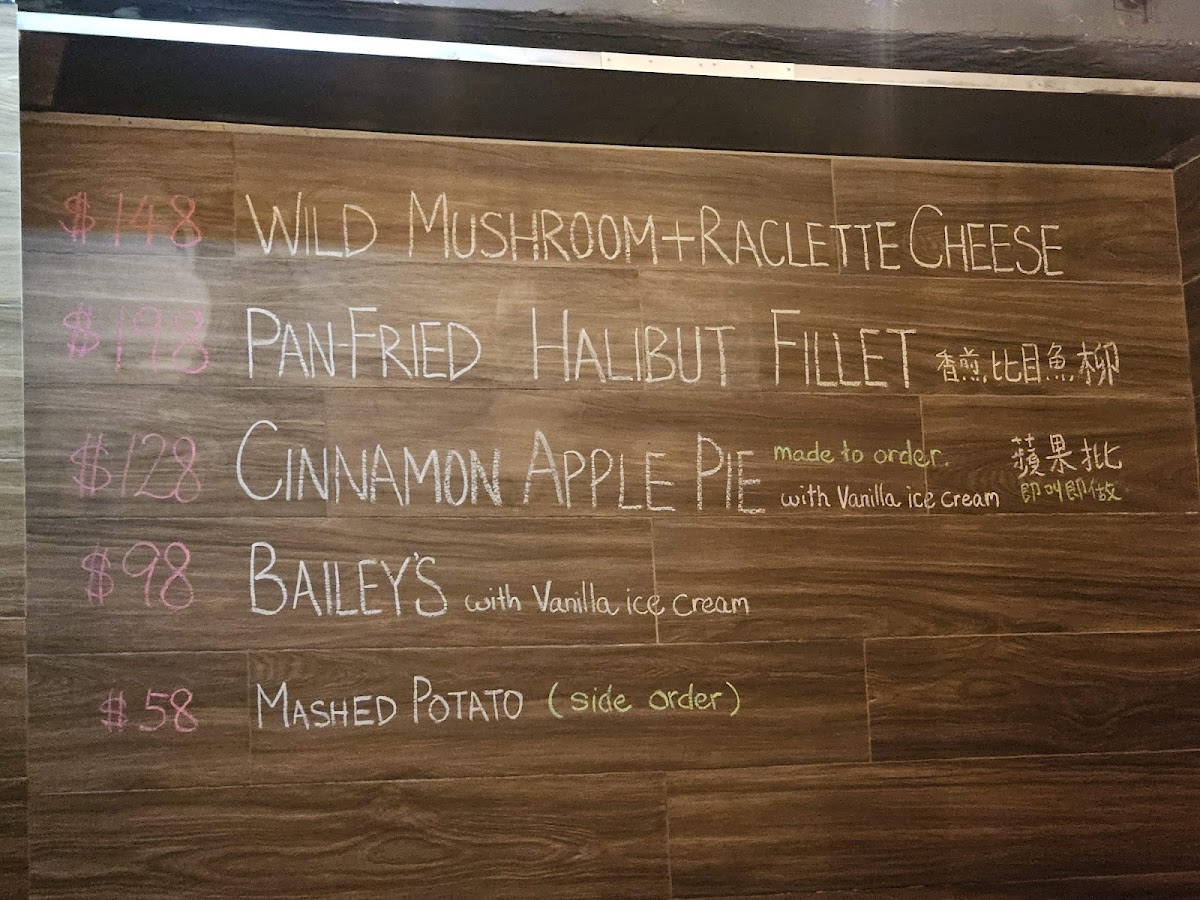 $148 WILD MUSHROOM+RACLETTE CHEESE
$198 PAN-FRIED HALIBUT FILLET 香煎比目魚柳
$128 CINNAMON APPLE PIE made to order. 蘋果批
with Vanilla ice cream 即叫即做
$98 BAILEY'S with Vanilla ice cream
$58 MASHED POTATO (side order)